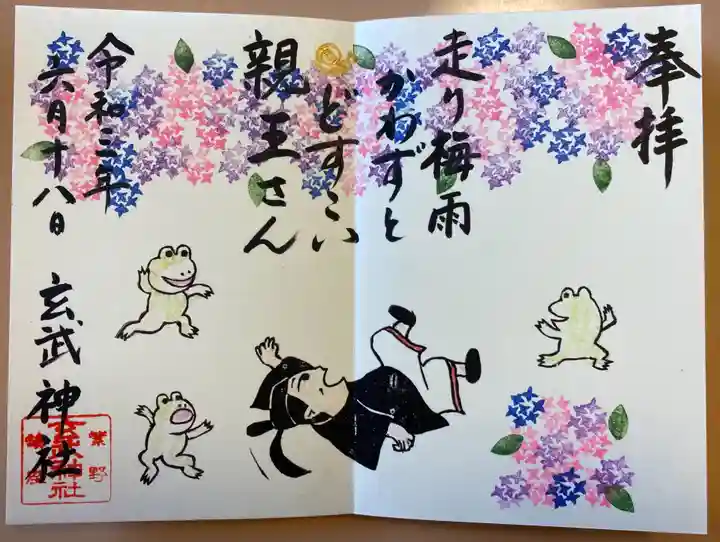 奉拝
走り梅雨
かわずと
どすこい
親王さん
令和三年
六月十八日
玄武神社
紫野
玄武神社